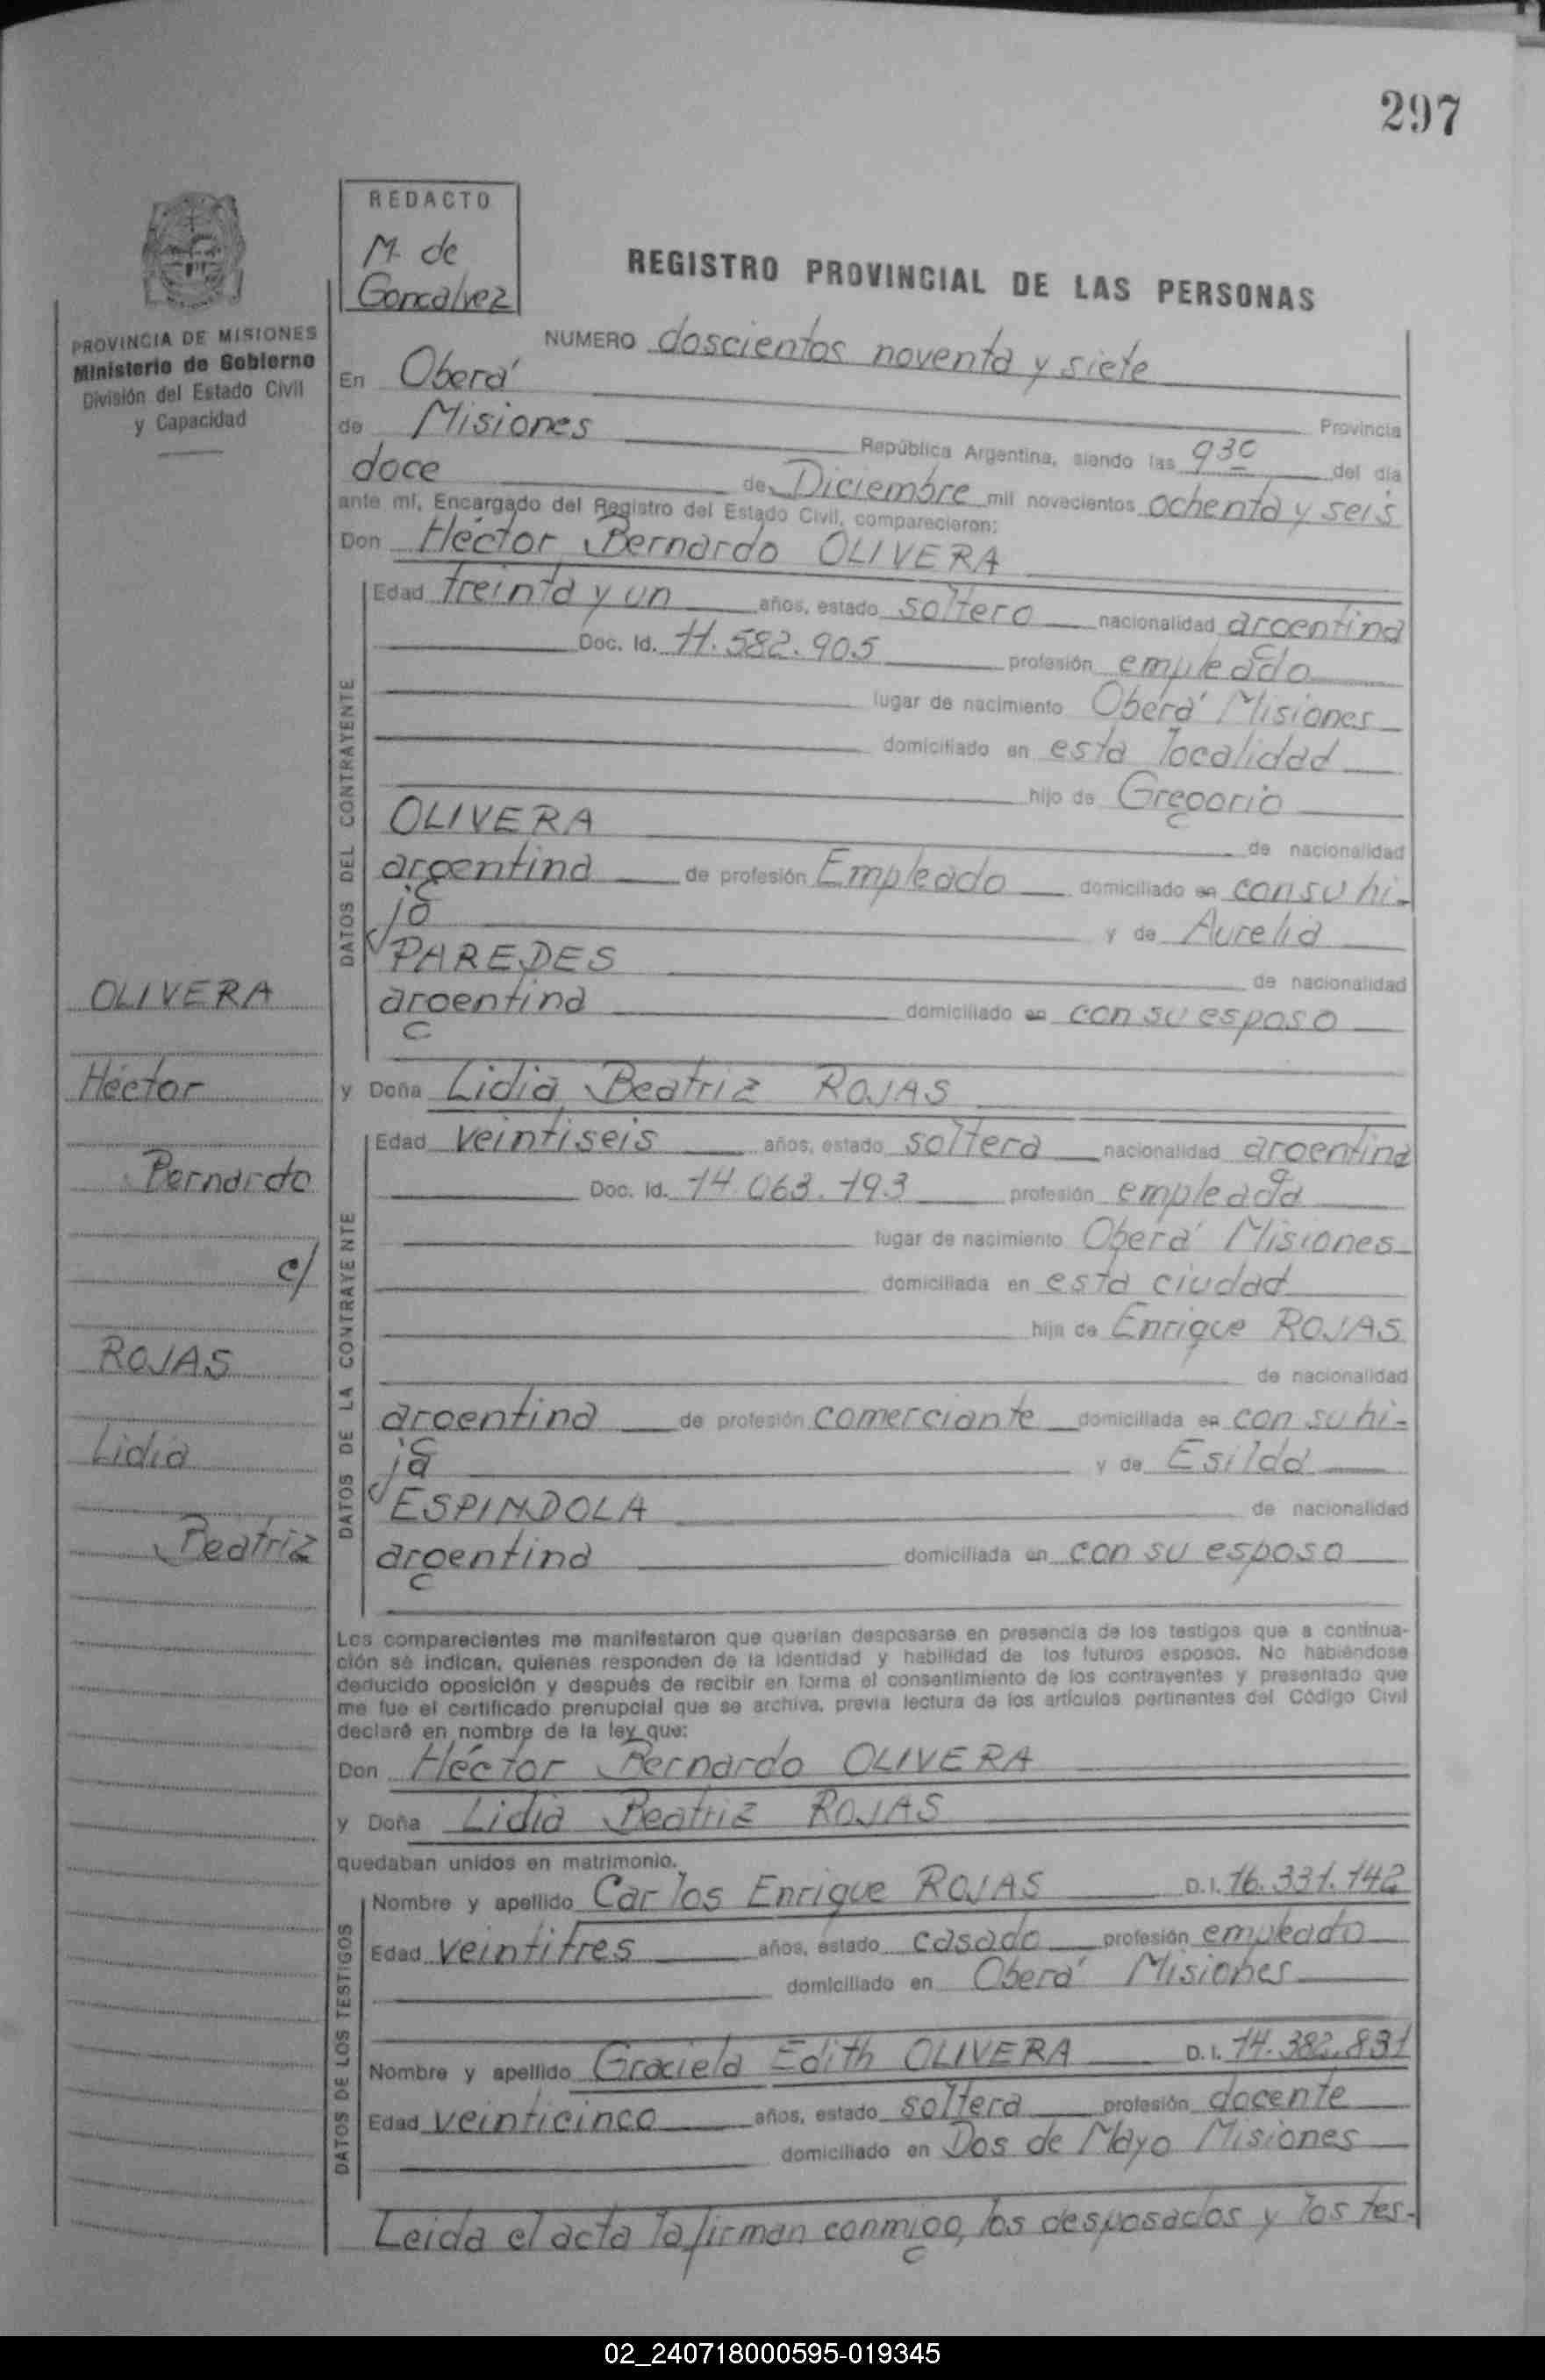 297
REDACTO
M. de
Goncalvez
REGISTRO PROVINCIAL DE LAS PERSONAS
PROVINCIA DE MISIONES
Ministerio de Gobierno
División del Estado Civil
y Capacidad
NUMERO doscientos noventa y siete
En Oberá
Provincia
de Misiones República Argentina, siendo las 9 30 del día
doce de Diciembre mil novecientos ochenta y seis
ante mí, Encargado del Registro del Estado Civil, comparecieron:
Don Héctor Bernardo OLIVERA
DATOS DEL CONTRAYENTE
Edad treinta y un años, estado soltero nacionalidad argentina
Doc. Id. 11.582.905 profesión empleado
lugar de nacimiento Oberá Misiones
domiciliado en esta localidad
hijo de Gregorio
OLIVERA de nacionalidad
argentina de profesión Empleado domiciliado en con su hi-
jo y de Aurelia
PAREDES de nacionalidad
argentina domiciliado en con su esposo
y Doña Lidia Beatriz ROJAS
DATOS DE LA CONTRAYENTE
Edad veintiseis años, estado soltera nacionalidad argentina
Doc. Id. 14.063.193 profesión empleada
lugar de nacimiento Oberá Misiones
domiciliada en esta ciudad
hija de Enrique ROJAS
de nacionalidad
argentina de profesión comerciante domiciliada en con su hi-
ja y de Esilda
ESPINDOLA de nacionalidad
argentina domiciliada en con su esposo
OLIVERA
Héctor
Bernardo
c/
ROJAS
Lidia
Beatriz
Los comparecientes me manifestaron que querían desposarse en presencia de los testigos que a continua-
ción se indican, quienes responden de la identidad y habilidad de los futuros esposos. No habiéndose
deducido oposición y después de recibir en forma el consentimiento de los contrayentes y presentado que
me fue el certificado prenupcial que se archiva, previa lectura de los artículos pertinentes del Código Civil
declaré en nombre de la ley que:
Don Héctor Bernardo OLIVERA
y Doña Lidia Beatriz ROJAS
quedaban unidos en matrimonio.
DATOS DE LOS TESTIGOS
Nombre y apellido Carlos Enrique ROJAS D.I. 16.331.142
Edad veintitres años, estado casado profesión empleado
domiciliado en Oberá Misiones
Nombre y apellido Graciela Edith OLIVERA D.I. 14.382.831
Edad veinticinco años, estado soltera profesión docente
domiciliado en Dos de Mayo Misiones
Leida el acta la firman conmigo, los desposados y los tes-
02_240718000595-019345